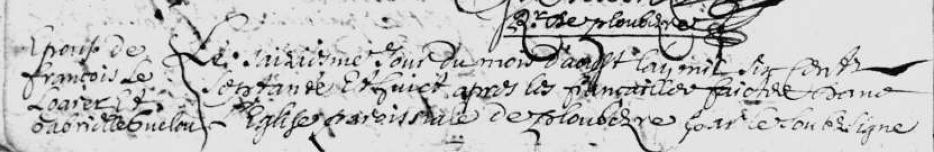 Rr de ploubezre
Epous de
francois Le
Loarer Et
Gabrielle Guelou
Le saiziesme Jour du mois d'aoust l'an mil six Centz
Septante Et huict apres les fiançailles faictes Dans
l'Eglise paroissiale de ploubezre par le soubzsigné